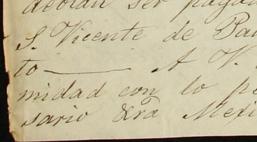 debian ser paga
S. Vicente de Pau
to——— A V.
midad con lo p
sario &ra Mexi